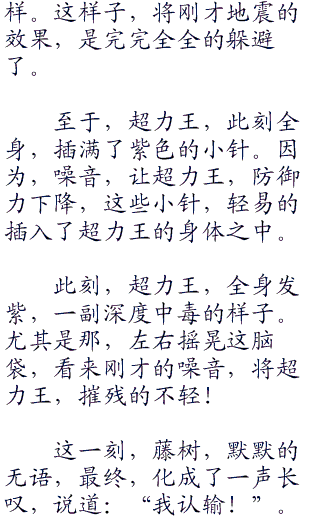 样。这样子，将刚才地震的
效果，是完完全全的躲避
了。
至于，超力王，此刻全
身，插满了紫色的小针。因
为，噪音，让超力王，防御
力下降，这些小针，轻易的
插入了超力王的身体之中。
此刻，超力王，全身发
紫，一副深度中毒的样子。
尤其是那，左右摇晃这脑
袋，看来刚才的噪音，将超
力王，摧残的不轻！
这一刻，藤树，默默的
无语，最终，化成了一声长
叹，说道：“我认输！”。